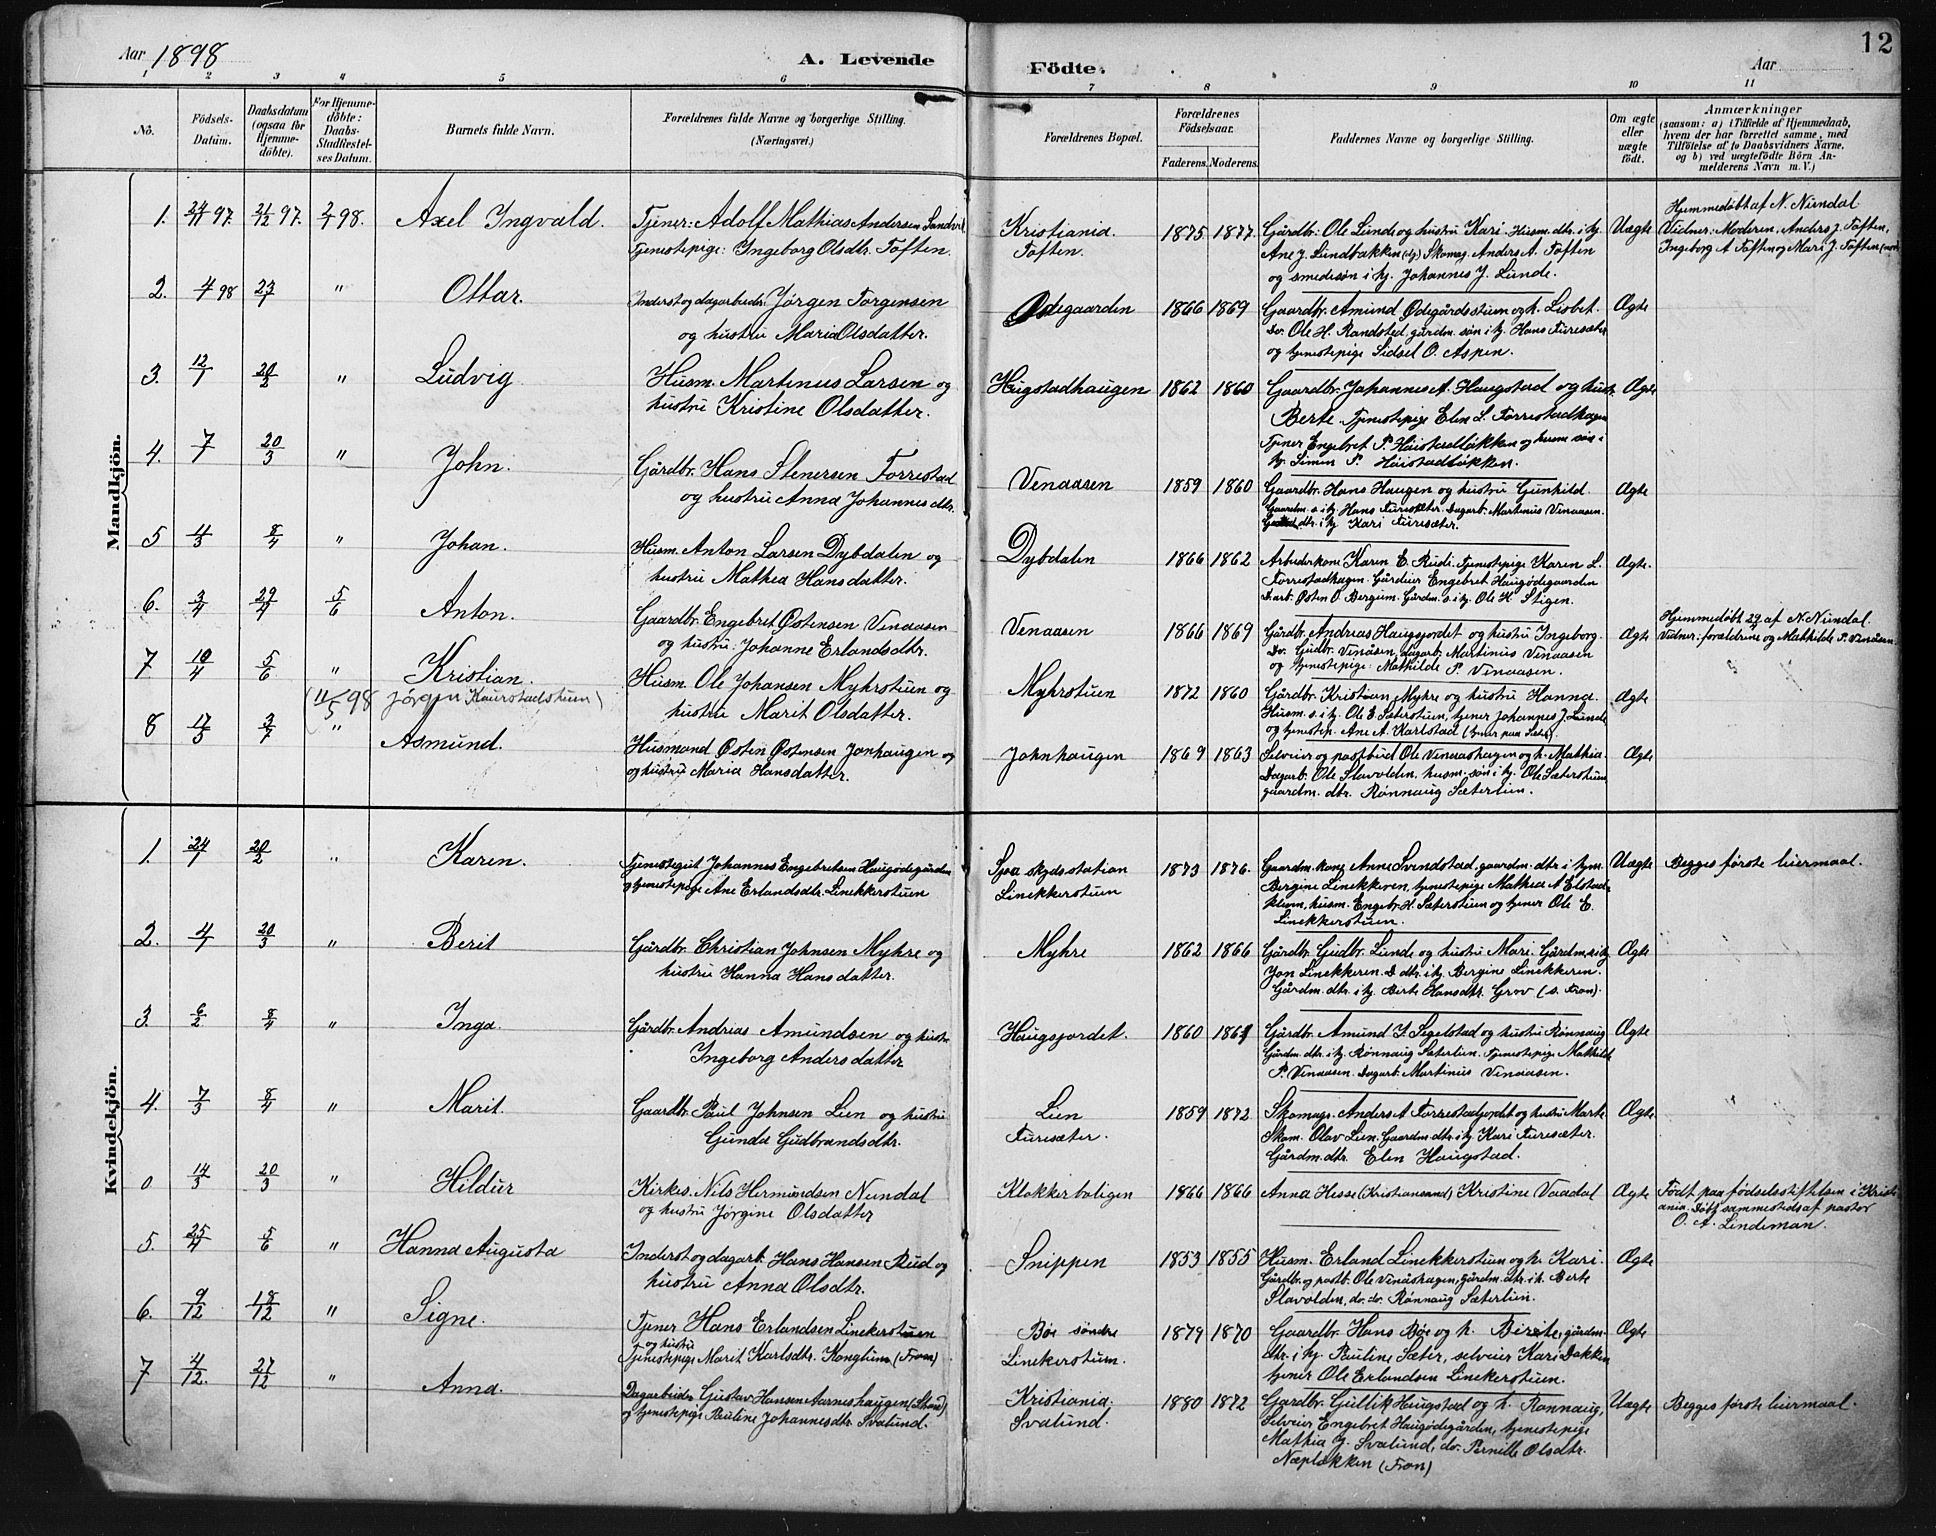 Aar 1898
A. Levende Födte.
Aar
12
1 2 3 4 5 6 7 8 9 10 11
No.
Födsels-Datum.
Daabsdatum (ogsaa for Hjemme-döbte).
For Hjemme-döbte: Daabs-Stadfæstel-ses Datum.
Barnets fulde Navn.
Forældrenes fulde Navne og borgerlige Stilling.
(Næringsvei.)
Forældrenes Bopæl.
Forældrenes Födselsaar.
Faderens. Moderens.
Faddernes Navne og borgerlige Stilling.
Om ægte eller uægte födt.
Anmærkninger
(saasom: a) i Tilfælde af Hjemmedaab, hvem der har forrettet samme, med Tilföielse af to Daabsvidners Navne, og b) ved uægtefödte Börn An-melderens Navn m.V.)
Mandkjön.
1. 24/11 97. 21/12 97. 2/1 98. Axel Ingvald.
Tjener: Adolf Mathias Andersen Sandvik
Tjenestepige: Ingeborg Olsdtr. Toften.
Kristiania.
Toften.
1875 1877.
Gårdbr. Ole Lunde og hustru Kari. Husm. dtr. i hj.
Ane J. Lundbakken (dy) Skomag. Anders A. Toften
og smedesøn i hj. Johannes J. Lunde.
Uægte
Hjemmedøbt af N. Nundal
Vidner: Moderen, Anders J. Toften,
Ingeborg A Toften og Mari J. Toften
2. 4/1 98 23/1 " Ottar.
Inderst og dagarbeider Jørgen Torgersen
og hustru Maria Olsdatter.
Ødegaarden 1866 1869
Gaardbr. Amund Ødegårdsstuen og h. Lisbet.
Do. Ole H. Randsted, gårdm. søn i hj. Hans Furesæter
og tjenestepige Sidsel O. Aspen.
Ægte
3. 12/1 20/3 " Ludvig
Husm. Martinus Larsen og
hustru Kristine Olsdatter.
Haugstadhaugen 1862 1860
Gaardbr. Johannes A. Haugstad og hustr.
Berte. Tjenestepige Elen L. Forrestadhagen
Tjener Engebret P. Haustadløkken og husm søn i
hj. Simen P. Haustadløkken.
Ægte
4. 7/1 20/3 " John.
Gårdbr. Hans Stenersen Forrestad
og hustru Anna Johannesdtr.
Venaasen 1859 1860
Gaardbr. Hans Haugen og hustru Gunhild.
Gaardm. s. i hj. Hans Furesæter. Dagarb. Martinus Venaasen.
dtr. i hj Kari Furesæter.
Ægte
5 4/3 8/4 " Johan.
Husm. Anton Larsen Dybdalen og
hustru Mathea Hansdatter.
Dybdalen 1866 1862
Arbeiderkone Karen E. Rudi. Tjenestepige Karen L.
Forrestadhagen. Gårdeier Engebret Haugødegaarden
D.arb. Østen O. Bergum. Gårdm. s. i hj. Ole H Stigen.
Ægte.
6. 3/4 29/4 5/6 Anton.
Gaardbr. Engebret Østensen Venaasen
og hustru: Johanne Erlandsdtr.
Venaasen 1866 1869
Gårdbr. Andreas Haugsjordet og hustru Ingeborg.
Do. Gudbr. Venåsen, dagarb. Martinus Venaasen
og tjenestepige: Mathilde P. Venaasen.
Ægte
Hjemmedøbt 29/4 af N. Nundal.
Vidner: forældrene og Mathilde P. Venåsen.
7 10/4 5/6 " Kristian.
Husm. Ole Johansen Myhrstuen og
hustru Marit Olsdatter.
Myhrstuen 1872 1860
Gårdbr. Kristian Myhre og hustru Hanna.
Husm. s. i hj. Ole E. Sæterstuen, tjener Johannes J. Lunde
og tjenestep. Ane A. Karlstad (tjener paa Sæter).
Ægte
(11/5 98 Jørgen Kaurstadstuen)
8 17/5 3/7 " Asmund.
Husmand Østen Østensen Jonhaugen og
og hustru Maria Hansdatter.
Johnhaugen 1869 1863
Selveier og postbud Ole Venaashagen og h. Mathea.
Dagarb. Ole Slavolden, husm. søn i hj. Ole Sæterstuen
gaardm. dtr. Rønnaug Sæterlien.
Ægte
Kvindekjön.
1. 24/1 20/2 " Karen.
Tjenestegut Johannes Engebretsen Haugødegården
og tjenestepige Ane Erlandsdtr. Linekkerstuen
Sjoa skydsstation
Linekkerstuen
1873 1876.
Gaardm. kone Anne Svendstad, gaardm. dtr. i hjem.
Bergine Linekkeren, tjenestepige Mathea A Elstad
kleven, husm. Engebr. H. Sæterstuen og tjener Ole E.
Linekkerstuen.
Uægte
Begges første leiermaal.
2. 4/1 20/3 " Berit
Gårdbr. Christian Johnsen Myhre og
hustru Hanna Hansdatter.
Myhre 1862 1866
Gårdbr. Gudbr. Lunde og hustru Mari. Gårdm. s. i hj
Jon Linekkeren. D dtr. i hj. Bergine Linekkeren.
Gårdm. dtr. i hj. Berte Hansdtr. Grov (s. Fron).
Ægte
3. 6/2 8/4 " Inga.
Gårdbr. Andrias Amundsen og hustr
Ingeborg Andersdatter
Haugsjordet. 1860 1861
Gårdbr. Amund J. Segelstad og hustru Rønnaug
Gårdm. dtr. i hj. Rønnaug Sæterlien. Tjenestepige Mathild
P. Venaasen. Dagarb. Martinus Venaasen.
Ægte
4. 7/3 8/4 " Marit.
Gaardbr. Paul Johnsen Lien og hustru
Gunda Gudbrandsdtr.
Lien
Furesæter.
1859 1872.
Skomag. Anders A Forrestadjordet og hustru Marte.
Skom. Olav Lien. Gaardm. dtr. i hj. Kari Furesæter.
Gårdm. dtr. Elen Haugstad.
Ægte
0 14/3 20/3 " Hildur
Kirkes. Nils Hermundsen Nundal
og hustru Jørgine Olsdatter
Klokkerboligen 1866 1866
Anna Hesse (Kristianssand) Kristine Vaadal
Ægte
Født paa fødselsstiftelsen i Kristi
ania. Døbt sammesteds af pastor
O. A. Lindeman.
5. 25/4 5/6 " Hanna Augusta
Inderst og dagarb. Hans Hansen Rud og
hustru Anna Olsdtr.
Snippen 1853 1855
Husm. Erland Linekkerstuen og h. Kari.
Gårdbr. og postb. Ole Venåshagen, gårdm. dtr. i h. Berte
Slavolden, do. do. Rønnaug Sæterlien.
Ægte
6. 9/12 18/12 " Signe.
Tjener Hans Erlandsen Linekerstuen
og hustru
Tjenestepige Marit Karlsdtr. Konglum (Fron)
Bøe søndre
Linekerstuen.
1879 1870
Gaardbr. Hans Bøe og h. Birete, gårdm-
dtr. i hj. Pauline Sæter, selveier Kari Bakken
tjener Ole Erlandsen Linekerstuen.
Ægte
7 4/12. 27/12 " Anna.
Dagarbeider Gustav Hansen Aarneshaugen
og tjenestepige Pauline Johannesdtr. Svalund.
Kristiania.
Svalund.
1880 1872
Gårdbr. Gullik Haugstad og h. Rønnaug,
Selveier Engebret Haugødegården, tjenestepige
Mathia J. Svalund, do. Pernille Olsdtr.
Næpløkken (Fron)
Uægte
Begges første leiermaal.